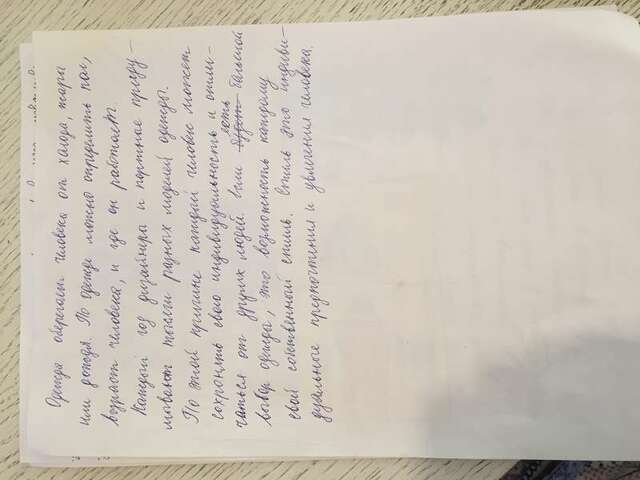 Одежда оберегает человека от халода, жары
или дождя. По одежде можно определить пол,
возраст человека, и где он работает.
Каждый год дизайнеры и портные приду-
мывают тысячи разных моделей одежды.
По этой причине каждый человек может
сохронять свою индивидуальность и отли-
чаться от других людей если есть большой
выбор одежды, это возможность каждому
свой собственный стиль. Стиль это индиви-
дуальные предпочтения и увлечения человека.